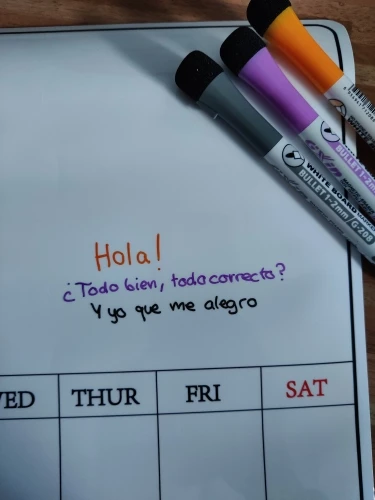 Hola!
¿Todo bien, todo correcto?
Y yo que me alegro
WHITE BOARD
BULLET 1-2mm/G-208
BULLET 1-2m
ED
THUR
FRI
SAT